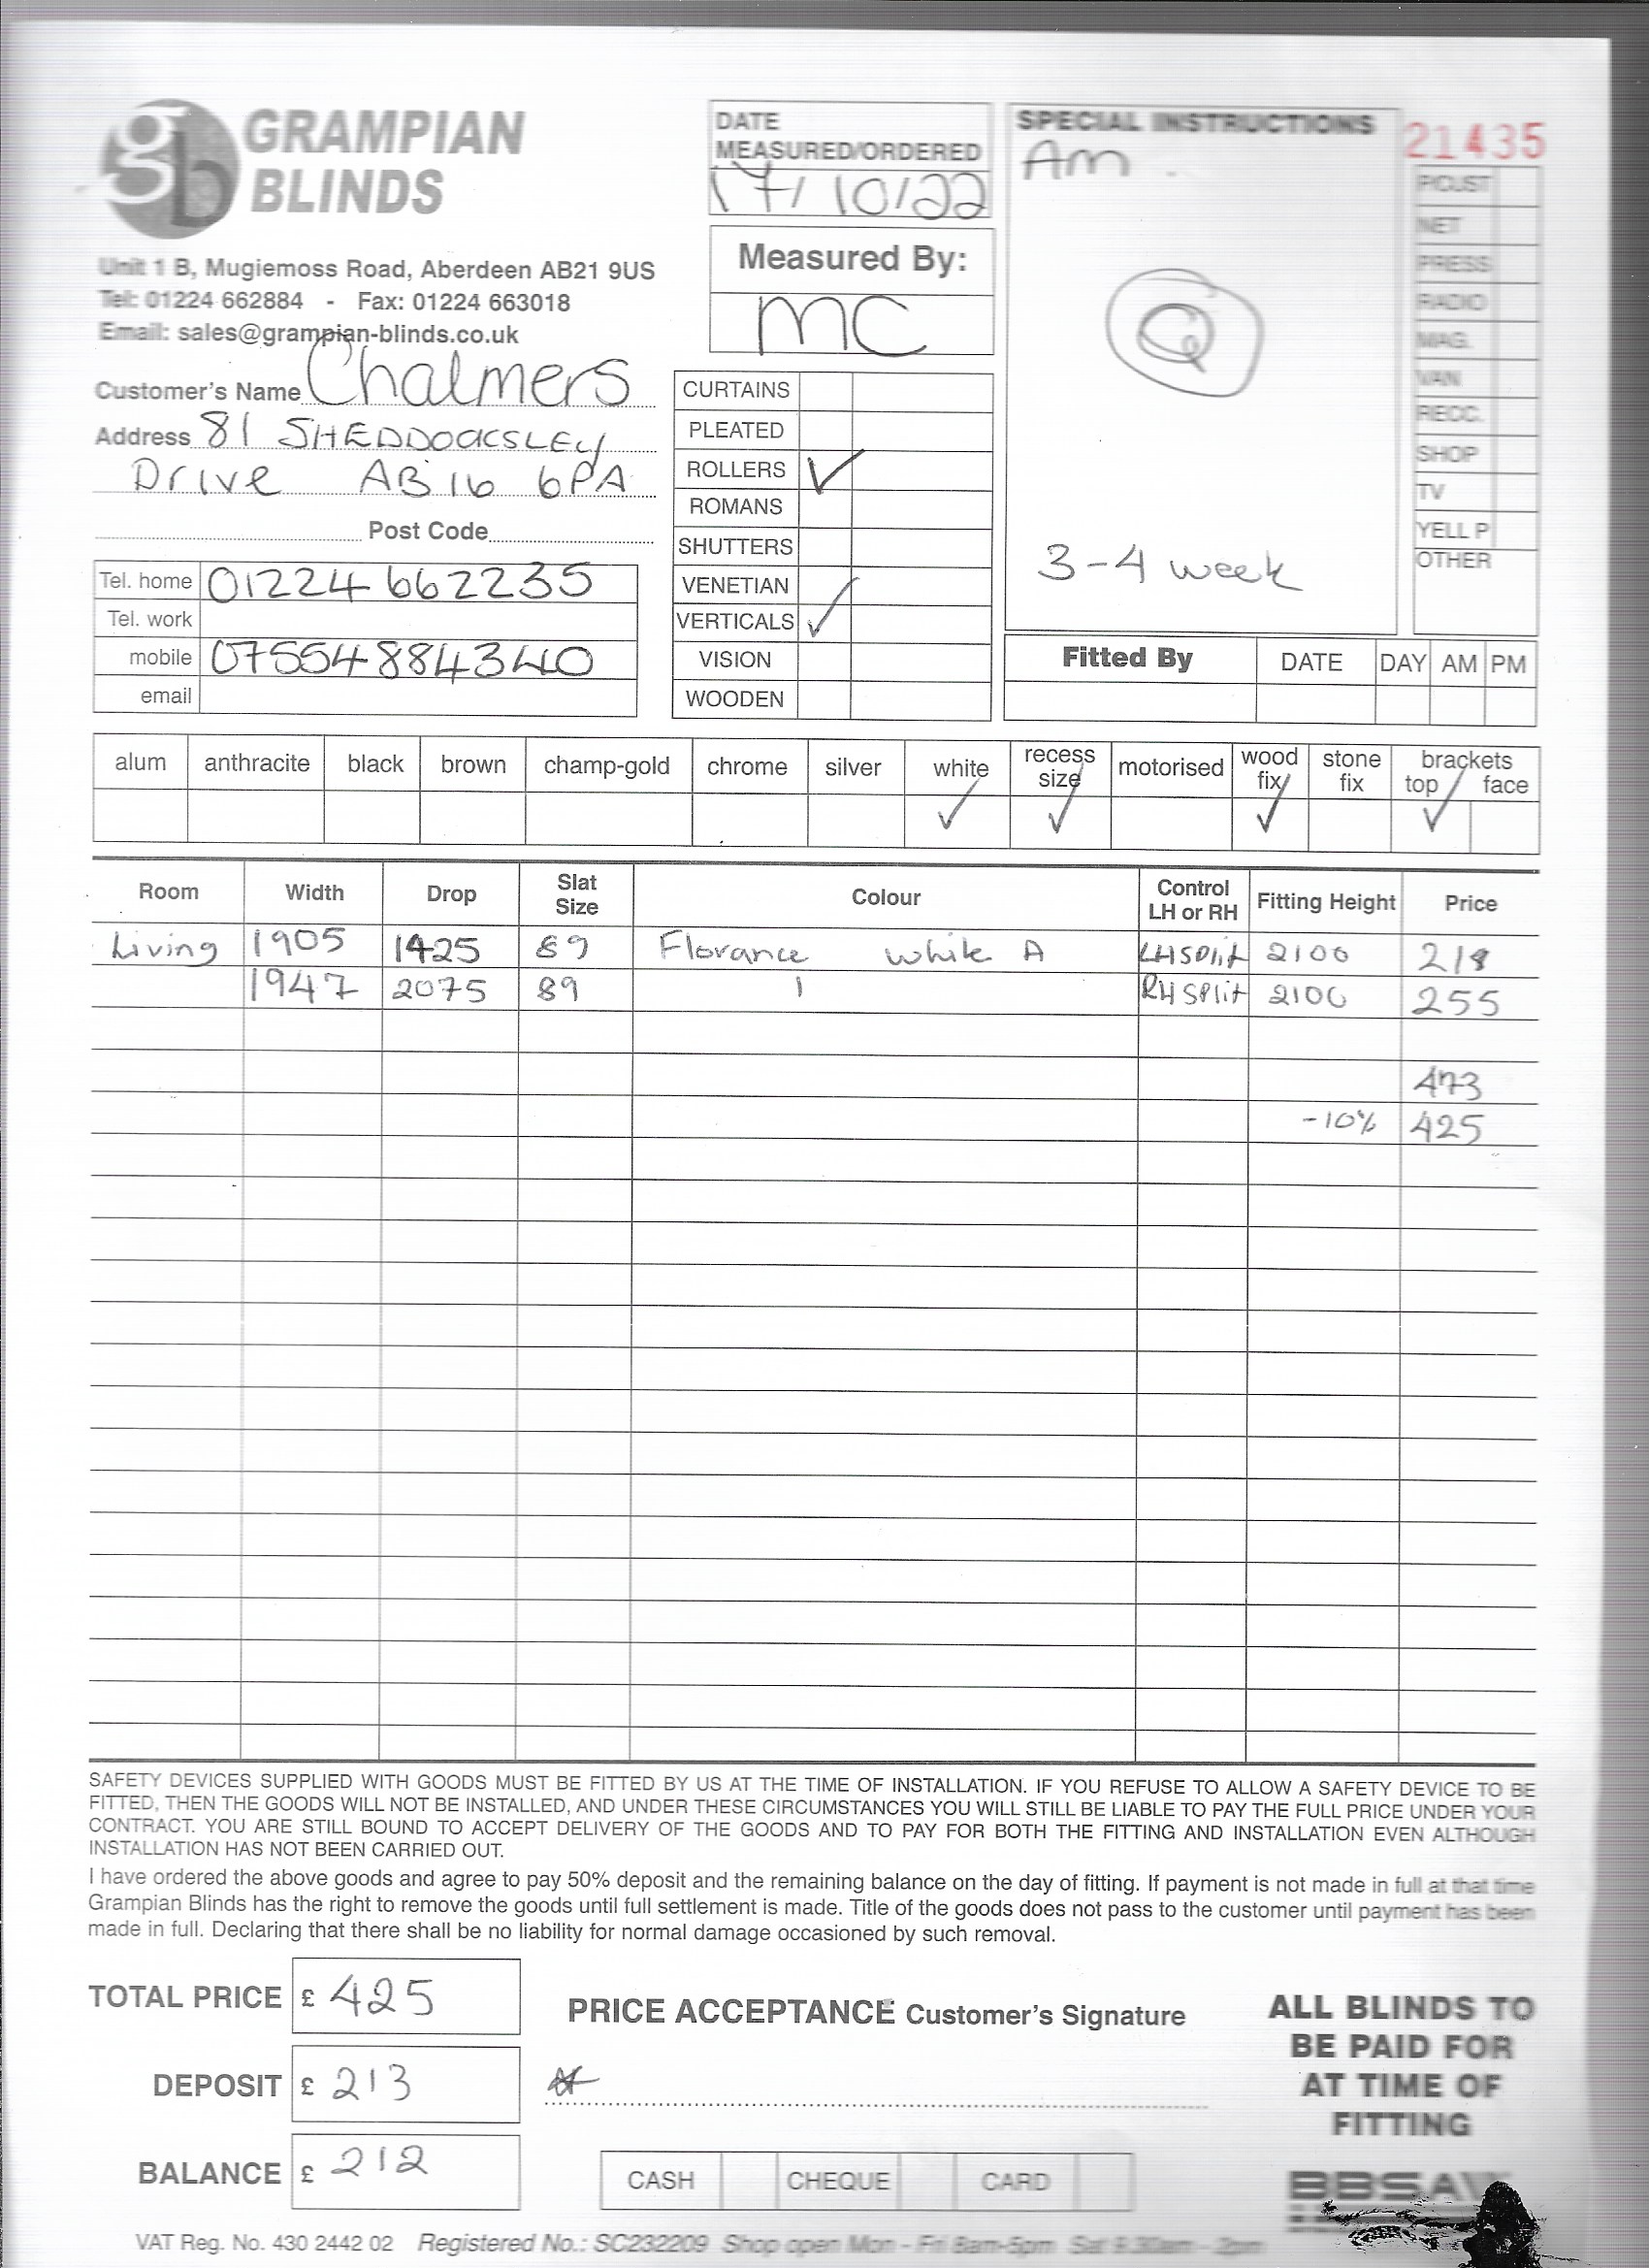 gb GRAMPIAN BLINDS
Unit 1 B, Mugiemoss Road, Aberdeen AB21 9US
Tel: 01224 662884 - Fax: 01224 663018
Email: sales@grampian-blinds.co.uk
Customer's Name Chalmers
Address 81 SHEDDOCKSLEY
Drive AB16 6PA
Post Code
Tel. home 01224 662235
Tel. work
mobile 07554884340
email
DATE
MEASURED/ORDERED
17/10/22
Measured By:
MC
CURTAINS
PLEATED
ROLLERS ✓
ROMANS
SHUTTERS
VENETIAN
VERTICALS ✓
VISION
WOODEN
SPECIAL INSTRUCTIONS
Am
Q
3-4 week
21435
P/CUST
NET
PRESS
RADIO
MAG.
VAN
RECC.
SHOP
TV
YELL P
OTHER
Fitted By DATE DAY AM PM
alum anthracite black brown champ-gold chrome silver white recess size motorised wood fix stone fix brackets top face
✓ ✓ ✓ ✓
Room Width Drop Slat Size Colour Control LH or RH Fitting Height Price
Living 1905 1425 89 Florance white A LH split 2100 218
1947 2075 89 RH split 2100 255
473
-10% 425
SAFETY DEVICES SUPPLIED WITH GOODS MUST BE FITTED BY US AT THE TIME OF INSTALLATION. IF YOU REFUSE TO ALLOW A SAFETY DEVICE TO BE
FITTED, THEN THE GOODS WILL NOT BE INSTALLED, AND UNDER THESE CIRCUMSTANCES YOU WILL STILL BE LIABLE TO PAY THE FULL PRICE UNDER YOUR
CONTRACT. YOU ARE STILL BOUND TO ACCEPT DELIVERY OF THE GOODS AND TO PAY FOR BOTH THE FITTING AND INSTALLATION EVEN ALTHOUGH
INSTALLATION HAS NOT BEEN CARRIED OUT.
I have ordered the above goods and agree to pay 50% deposit and the remaining balance on the day of fitting. If payment is not made in full at that time
Grampian Blinds has the right to remove the goods until full settlement is made. Title of the goods does not pass to the customer until payment has been
made in full. Declaring that there shall be no liability for normal damage occasioned by such removal.
TOTAL PRICE £ 425
DEPOSIT £ 213
BALANCE £ 212
PRICE ACCEPTANCE Customer's Signature
CASH CHEQUE CARD
ALL BLINDS TO
BE PAID FOR
AT TIME OF
FITTING
BBSA
VAT Reg. No. 430 2442 02 Registered No.: SC232209 Shop open Mon - Fri 8am-5pm Sat 9.30am - 2pm